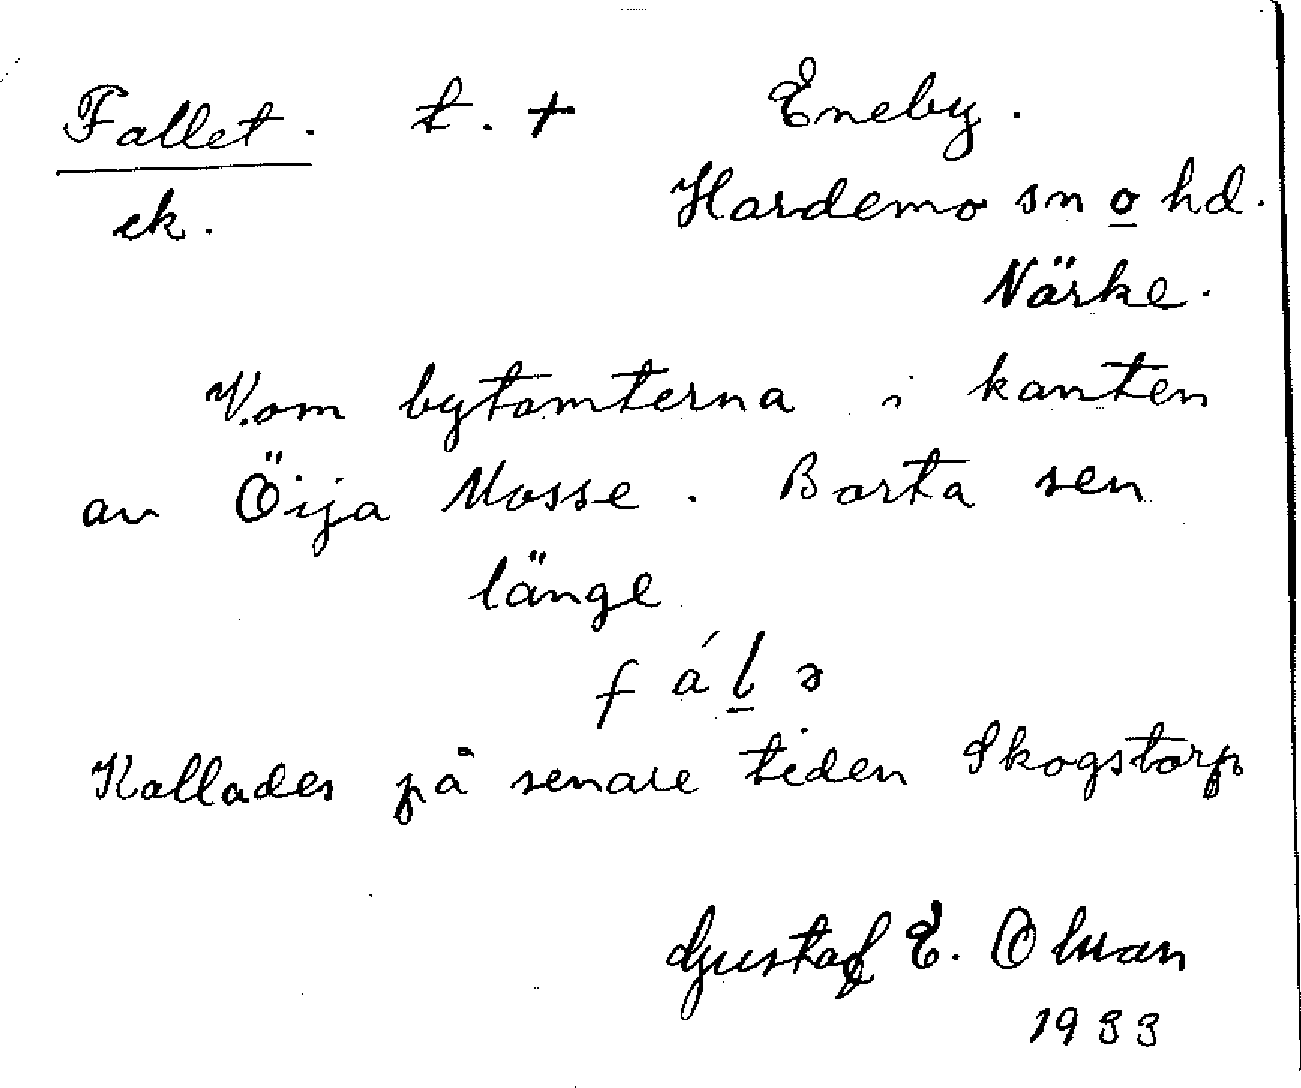 Fallet. t. + Eneby.
ek. Hardemo sn o hd.
Närke.
V. om bytomterna i kanten
av Öija Mosse. Borta sen
länge
f á l ə
Kallades på senare tiden Skogstorp
Gustaf E. Olsson
1933